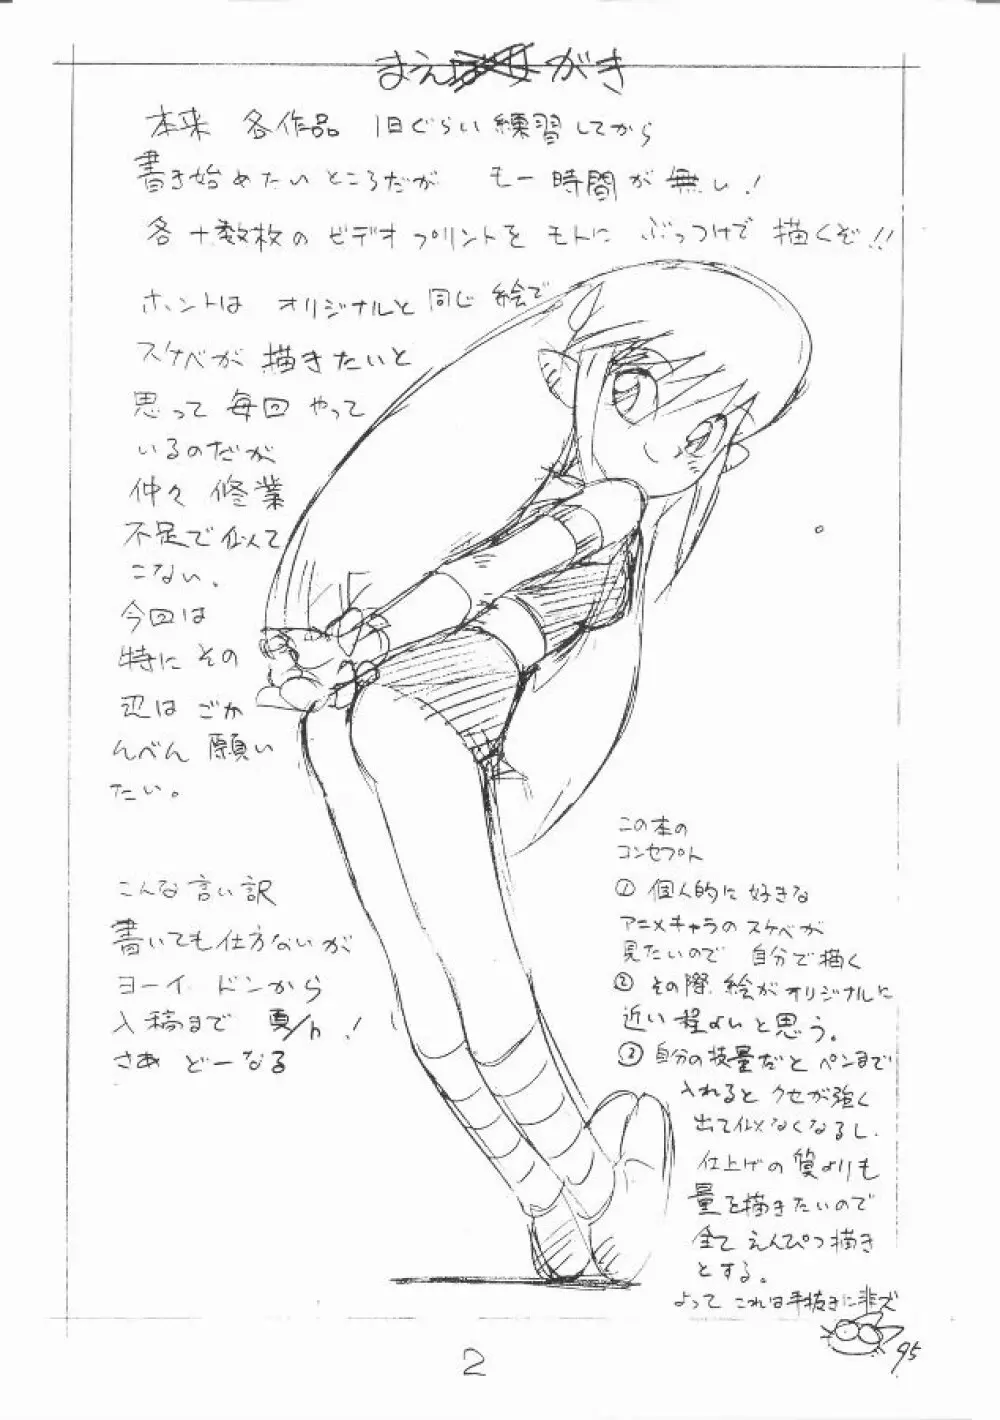 まえがき
本来 各作品 1日ぐらい練習してから
書き始めたいところだが もー時間が無い!
各十数枚のビデオプリントをモトに ぶっつけで描くぞ!!
ホントは オリジナルと同じ絵で
スケベが 描きたいと
思って 毎回 やって
いるのだが
仲々 修業
不足で似て
こない。
今回は
特に その
辺は ごか
んべん 願い
たい。
こんな言い訳
書いても仕方ないが
ヨーイ ドンから
入稿まで
さあ どーなる
この本の
コンセプト
① 個人的に好きな
アニメキャラのスケベが
見たいので 自分で描く
② その際 絵がオリジナルに
近い程よいと思う。
③ 自分の技量だと ペンまで
入れると クセが強く
出て似なくなるし、
仕上げの質よりも
量を描きたいので
全て えんぴつ描き
とする。
よって これは手抜きに非ズ
95
2